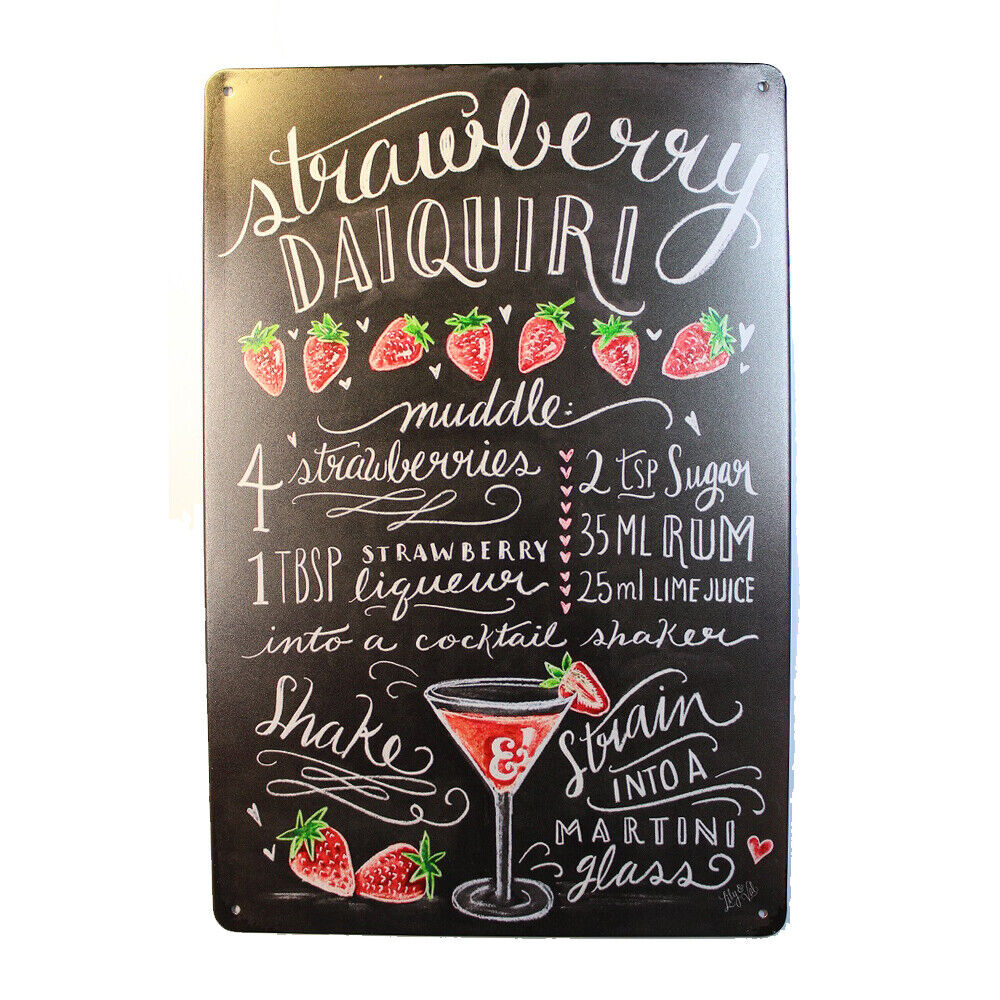 strawberry
DAIQUIRI
muddle:
4 strawberries
1 TBSP STRAWBERRY
liqueur
2 TSP Sugar
35 ML RUM
25 ml LIME JUICE
into a cocktail shaker
Shake
&
Strain
INTO A
MARTINI
glass
Lily & Val